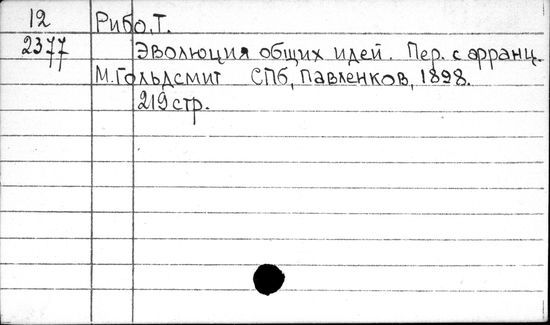 12 Рибо, Т.
2377 Эволюция общих идей. Пер. с франц.
М. Гольдсмит СПб, Павленков, 1898.
219 стр.